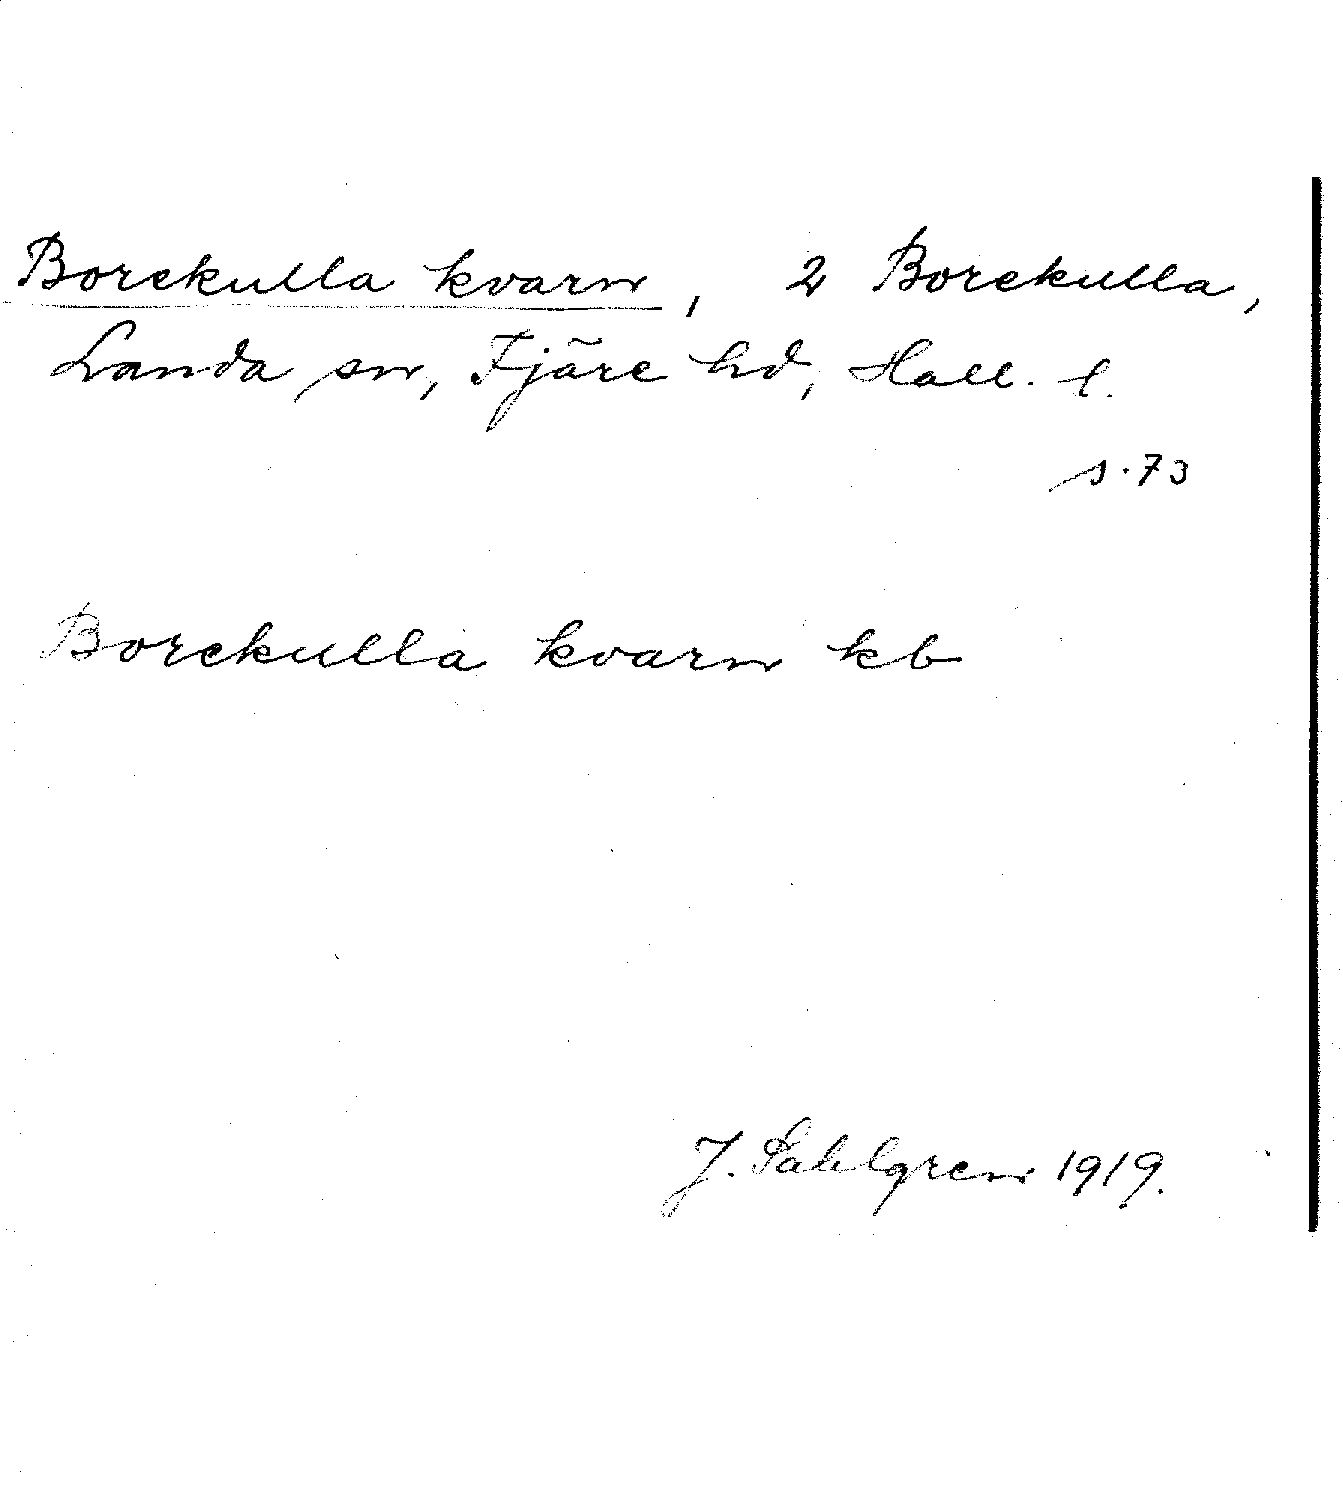 Borekulla kvarn, 2 Borekulla,
Landa sn, Fjäre hd, Hall. l.
s. 73
Borekulla kvarn kb
J. Sahlgren 1919.